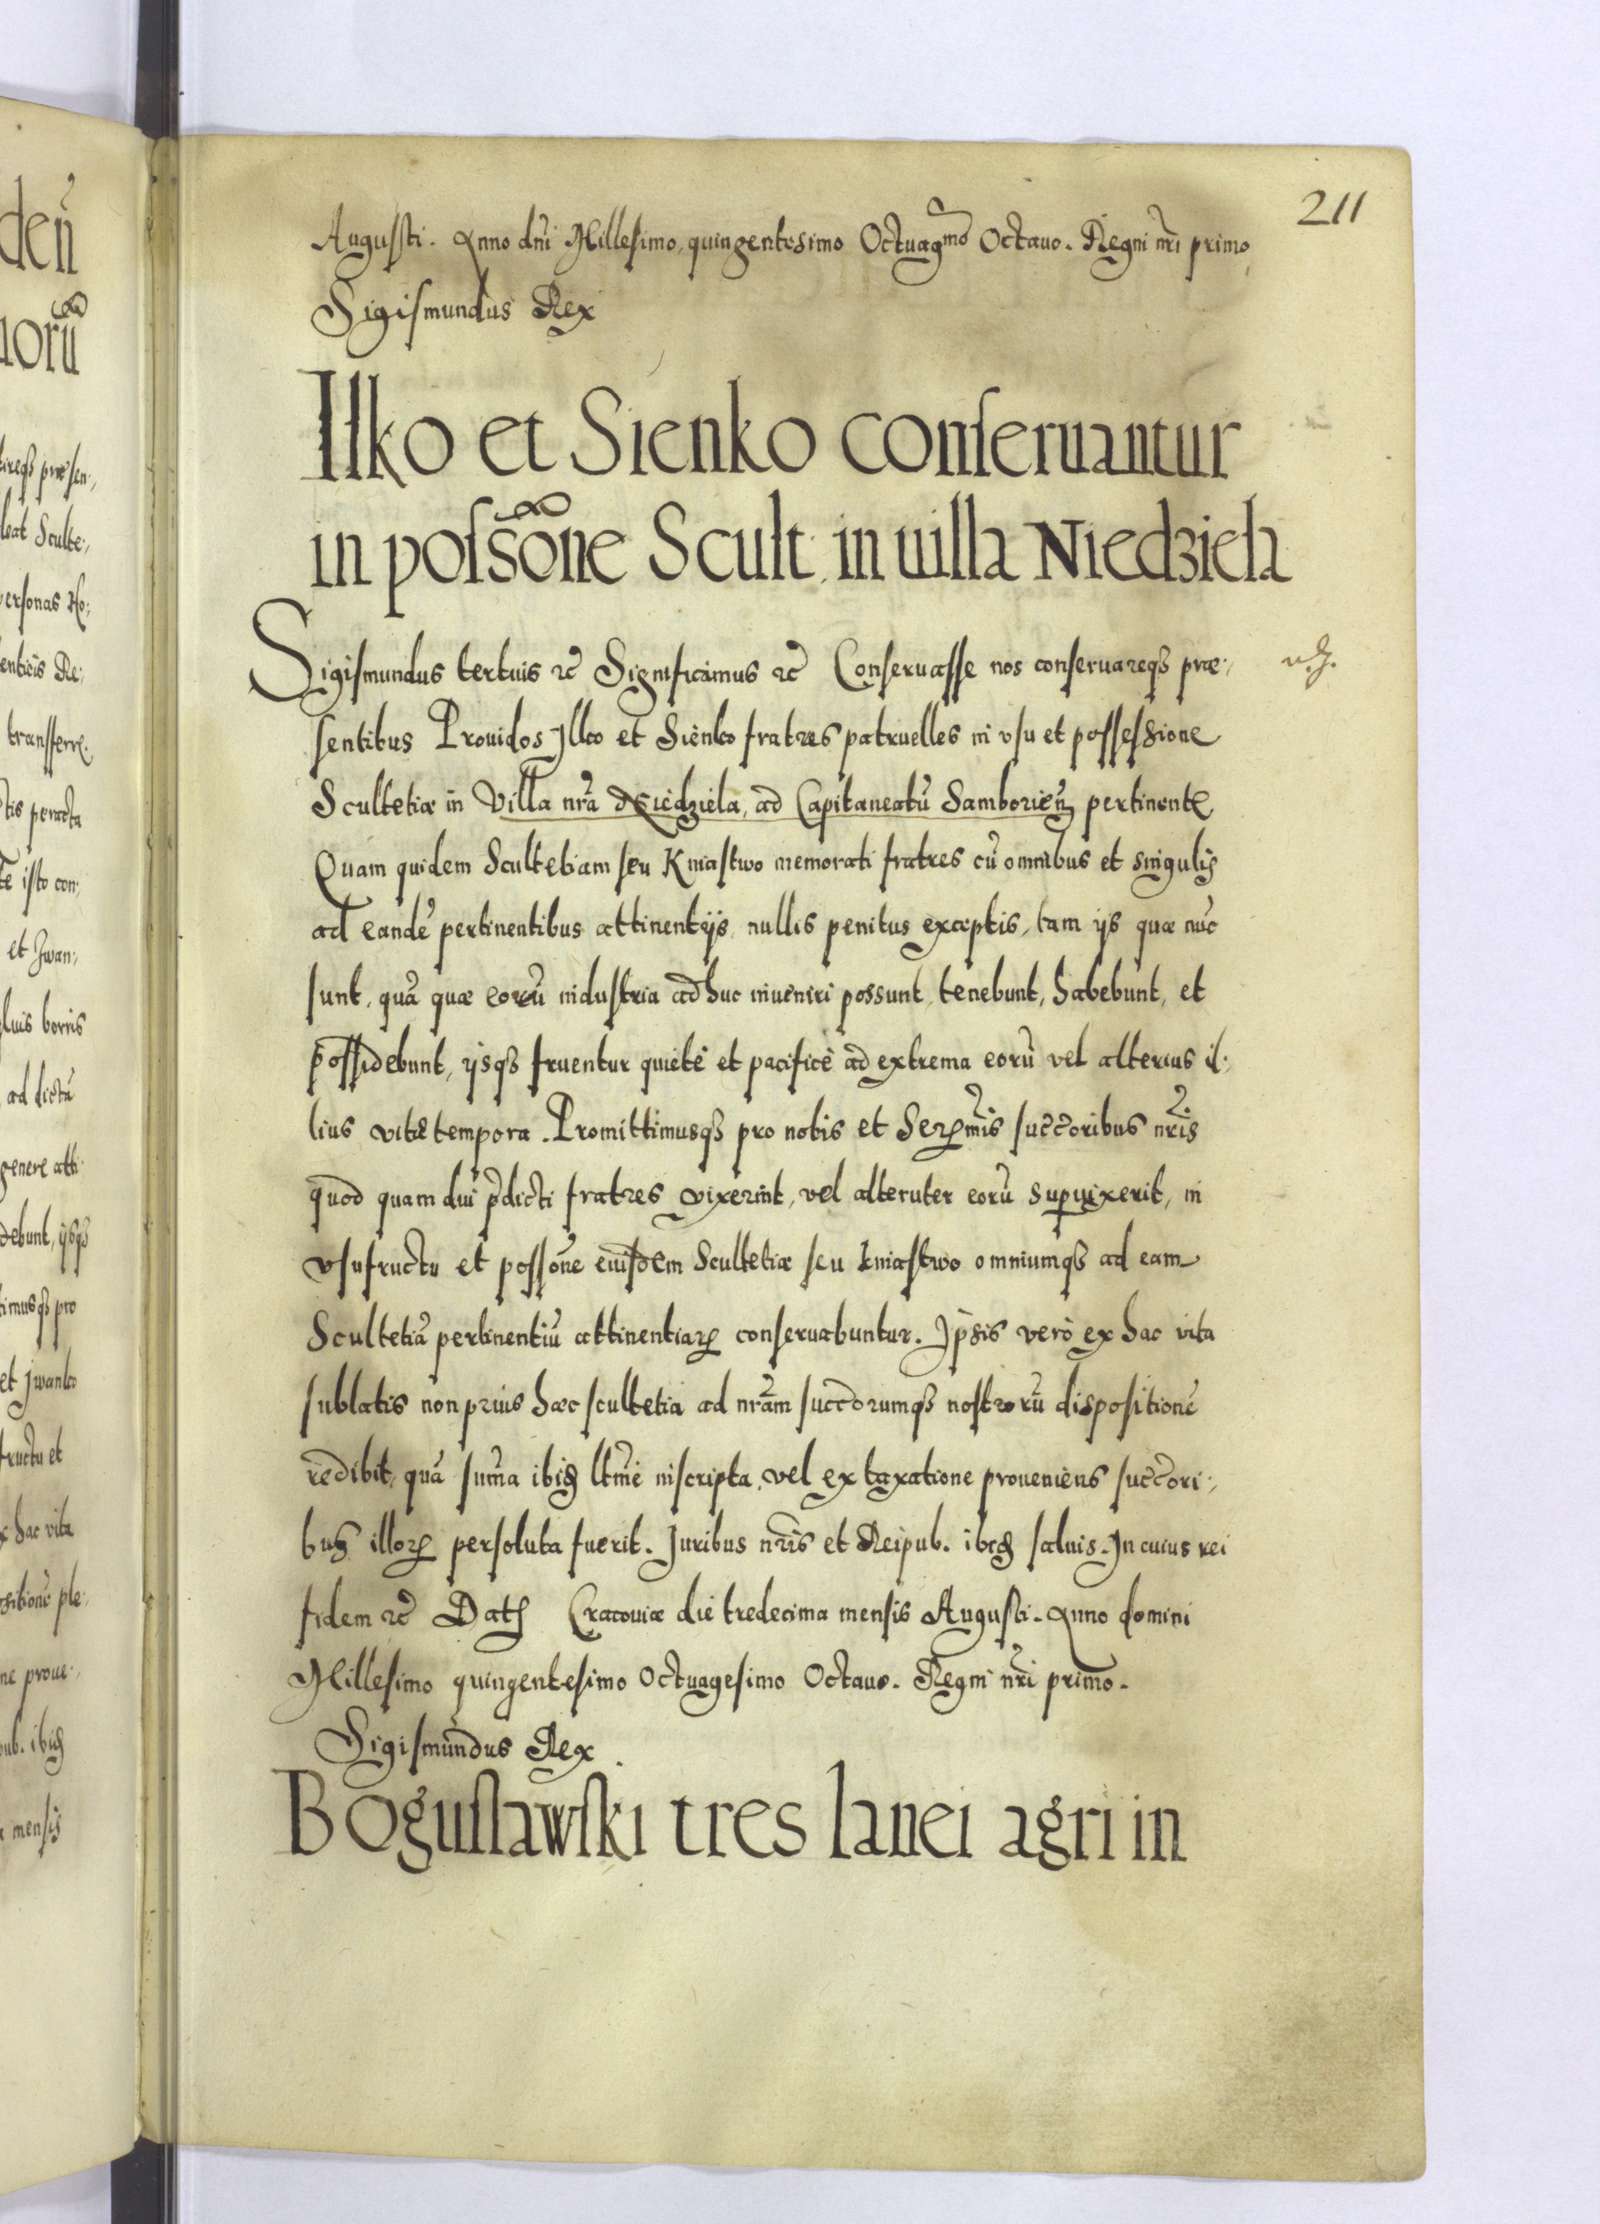 211
Augusti. Anno dñi Millesimo, quingentesimo Octuagmo Octauo. Regni nri primo
Sigismundus Rex
Ilko et Sienko conseruantur
in possone Scult. in uilla Niedziela
Sigismundus tertuis &c Significamus &c Conseruasse nos conseruareqȝ præ-
sentibus Prouidos Jlko et Sienko fratres patruelles in vsu et possessione
Scultetiæ in Villa nra Niedziela, ad Capitaneatũ Samborien pertinente
Quam quidem Scultetiam seu Kniastwo memorati fratres cũ omnibus et singulis
ad eandẽ pertinentibus attinentijs, nullis penitus exceptis, tam ijs quæ nuc
sunt, quã quæ eorũ industria ad huc inueniri possunt, tenebunt, habebunt, et
possidebunt, ijsqȝ fruentur quietè et pacificè ad extrema eorũ vel alterius il-
lius vitæ tempora. Promittimusqȝ pro nobis et Sermis succoribus nris
quod quam dui pdicti fratres vixerint, vel alteruter eorũ supuixerit, in
vsufructu et possone eiusdem Scultetiæ seu kniastwo omniumqȝ ad eam
Scultetiã pertinentiũ attinentiarꝝ conseruabuntur. Ipsis verò ex hac vita
sublatis non prius hæc scultetia ad nram succorumqȝ nostrorũ dispositionẽ
redibit, quã suma ibiđ ltme inscripta, vel ex taxatione proueniens succori-
bus illorꝝ persoluta fuerit. Juribus nris et Reipub. ibiđ saluis. In cuius rei
fidem &c Dat Cracouiæ die tredecima mensis Augusti. Anno domini
Millesimo quingentesimo Octuagesimo Octauo. Regni nri primo.
Sigismundus Rex
Boguslawski tres lanei agri in